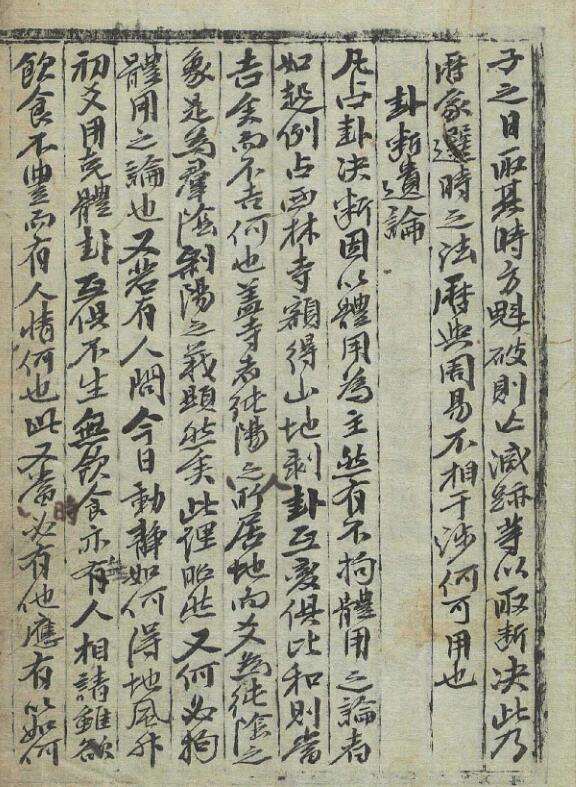 子之日取其時方魁破則云滅跡等以取斷决此乃
曆家選時之法曆與周易不相干涉何可用也
卦斷遺論
凡占卦决断因以體用為主然有不拘體用之論者
如起例占西林寺額得山地剥卦互變俱比和則當
吉矣而不吉何也盖寺者純陽人之所居地而爻為純陰之
象是為羣陰剥陽之義顕然矣此理昭然又何必拘
體用之論也又若有人問今日動静如何得地風升
初爻用克體卦互俱不生無飲食亦有人相請雖欲
飲食不豊而有人情何也此又當時必有他應有以如何